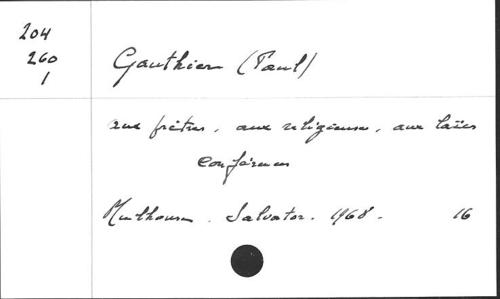 204
260
1
Gauthier (Paul)
aux prêtres, aux religieuses, aux laïcs
Conférences
Mulhouse. Salvator. 1968. 16